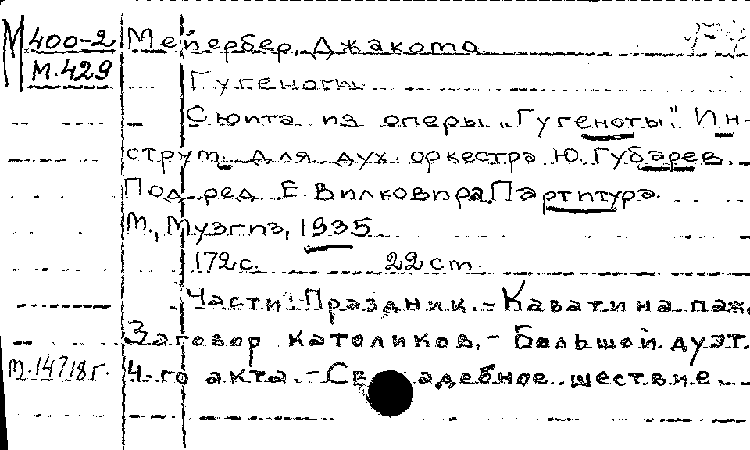 М 400-2 Мейербер, Джакомо
М.429 Гугеноты.
Сюита из оперы „Гугеноты". Ин-
струм. для дух оркестра Ю. Губарев.
Под ред Е. Вилковира. Партитура.
М., Музгиз, 1935
172 с. 22 ст
Части: Праздник. - Каватина паж
Заговор католиков. - Большой дуэт.
М.14718г. 4-го акта. - адебное шествие.